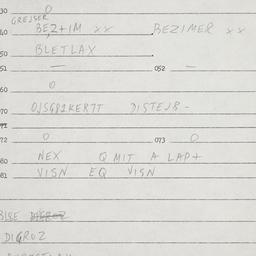 30 0
GREJSER
40 BEZ+IM xx BEZIMER xx
50 BLETLAX
51 — 052 —
60 0
70 OJSG81KER7T DISTEJ8-
71
72 0 073 0
80 NEX Q MIT A LAP+
81 VISN EQ VISN
BLBE DIGROZ
DIGROZ